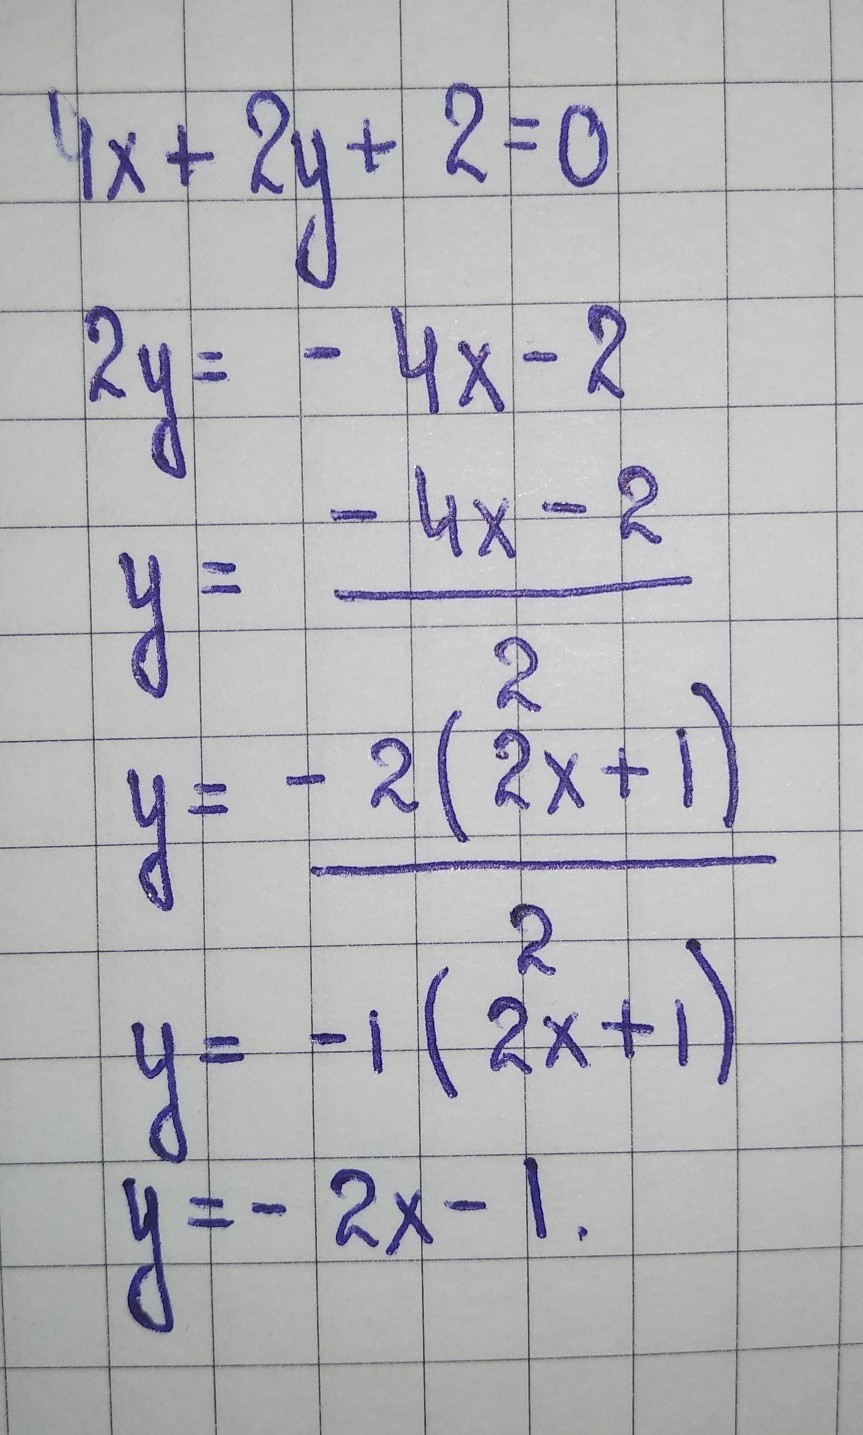 4x + 2y + 2 = 0
2y = - 4x - 2
y = \frac{- 4x - 2}{2}
y = \frac{- 2(2x + 1)}{2}
y = -1(2x + 1)
y = - 2x - 1.